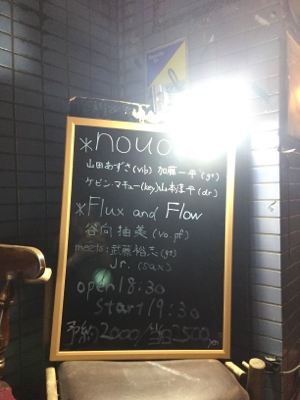 *nouo
山田あずさ(vib) 加藤一平(gt)
ケビン・マキュー(key)山本淳平(dr)
*Flux and Flow
谷向柚美(vo.pf)
meets:武藤祐志(gt)
Jr.(sax)
open18:30
start19:30
予約2000/当日2500yen